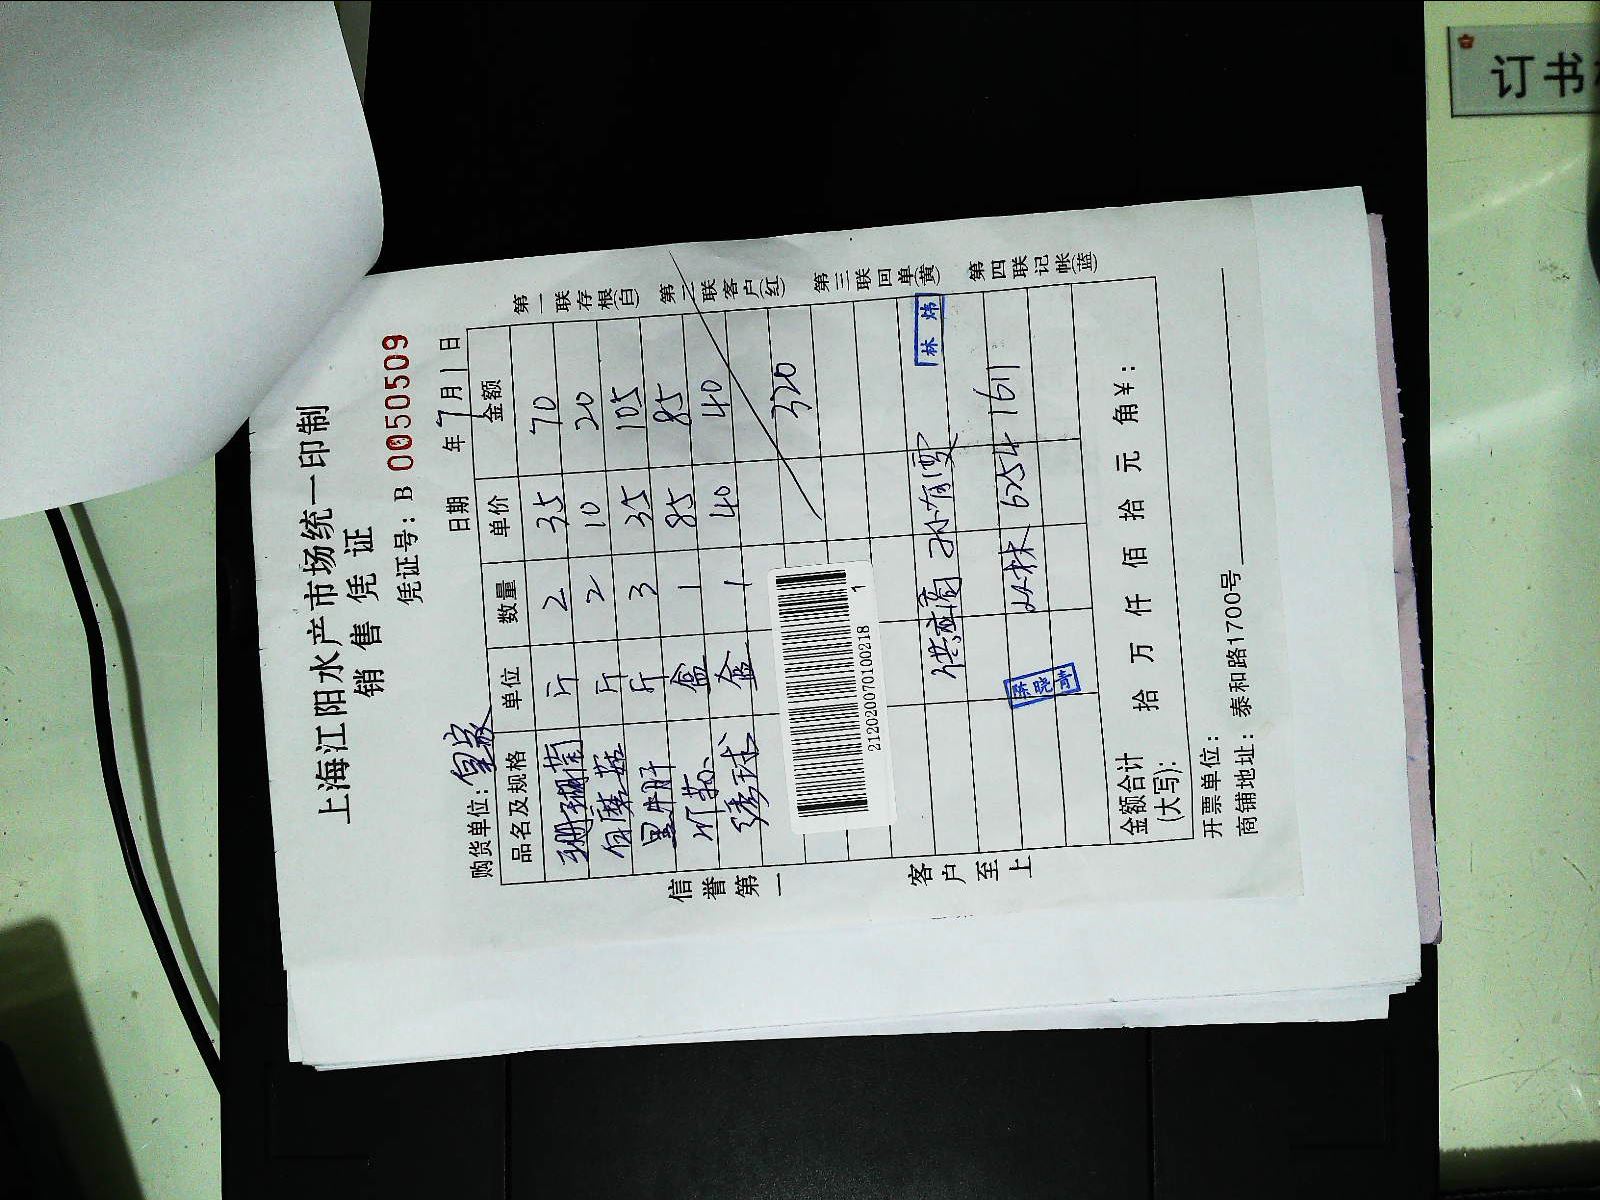 上海江阳水产市场统一印制
销售凭证
凭证号: B 0050509
购货单位: 皇家 日期 年 7 月 1 日
品名及规格 单位 数量 单价 金额
珊瑚菌 斤 2 35 70
白蘑菇 斤 2 10 20
黑牛肝 斤 3 35 105
竹荪 盒 1 85 85
绣球 盒 1 40 40
320
212020070100218 1
供应商 孙有雯
林炜
6254 1611
陈晓青
金额合计
(大写): 拾 万 仟 佰 拾 元 角 ¥:
开票单位:
商铺地址: 泰和路1700号
信誉第一
客户至上
第一联存根(白)
第二联客户(红)
第三联回单(黄)
第四联记帐(蓝)
订书